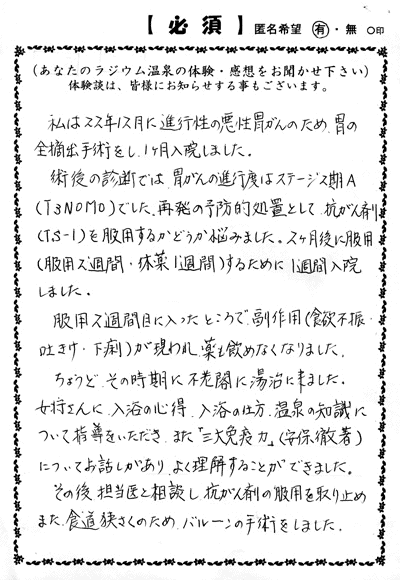 【必須】 匿名希望 有・無 ○印
(あなたのラジウム温泉の体験・感想をお聞かせ下さい)
体験談は、皆様にお知らせする事もございます。
私は22年12月に進行性の悪性胃がんのため、胃の
全摘出手術をし、1ヶ月入院しました。
術後の診断では、胃がんの進行度はステージ2期A
(T3N0M0)でした。再発の予防的処置として、抗がん剤
(TS-1)を服用するかどうか悩みました。2ヶ月後に服用
(服用2週間・休薬1週間)するために1週間入院
しました。
服用2週間目に入ったところで、副作用(食欲不振・
吐きけ・下痢)が現われ、薬も飲めなくなりました。
ちょうど、その時期に不老閣に湯治に来ました。
女将さんに、入浴の心得、入浴の仕方、温泉の知識に
ついて指導をいただき、また「三大免疫力」(安保徹著)
についてお話しがあり、よく理解することができました。
その後、担当医と相談し、抗がん剤の服用を取り止め
また、食道狭さくのため、バルーンの手術をしました。